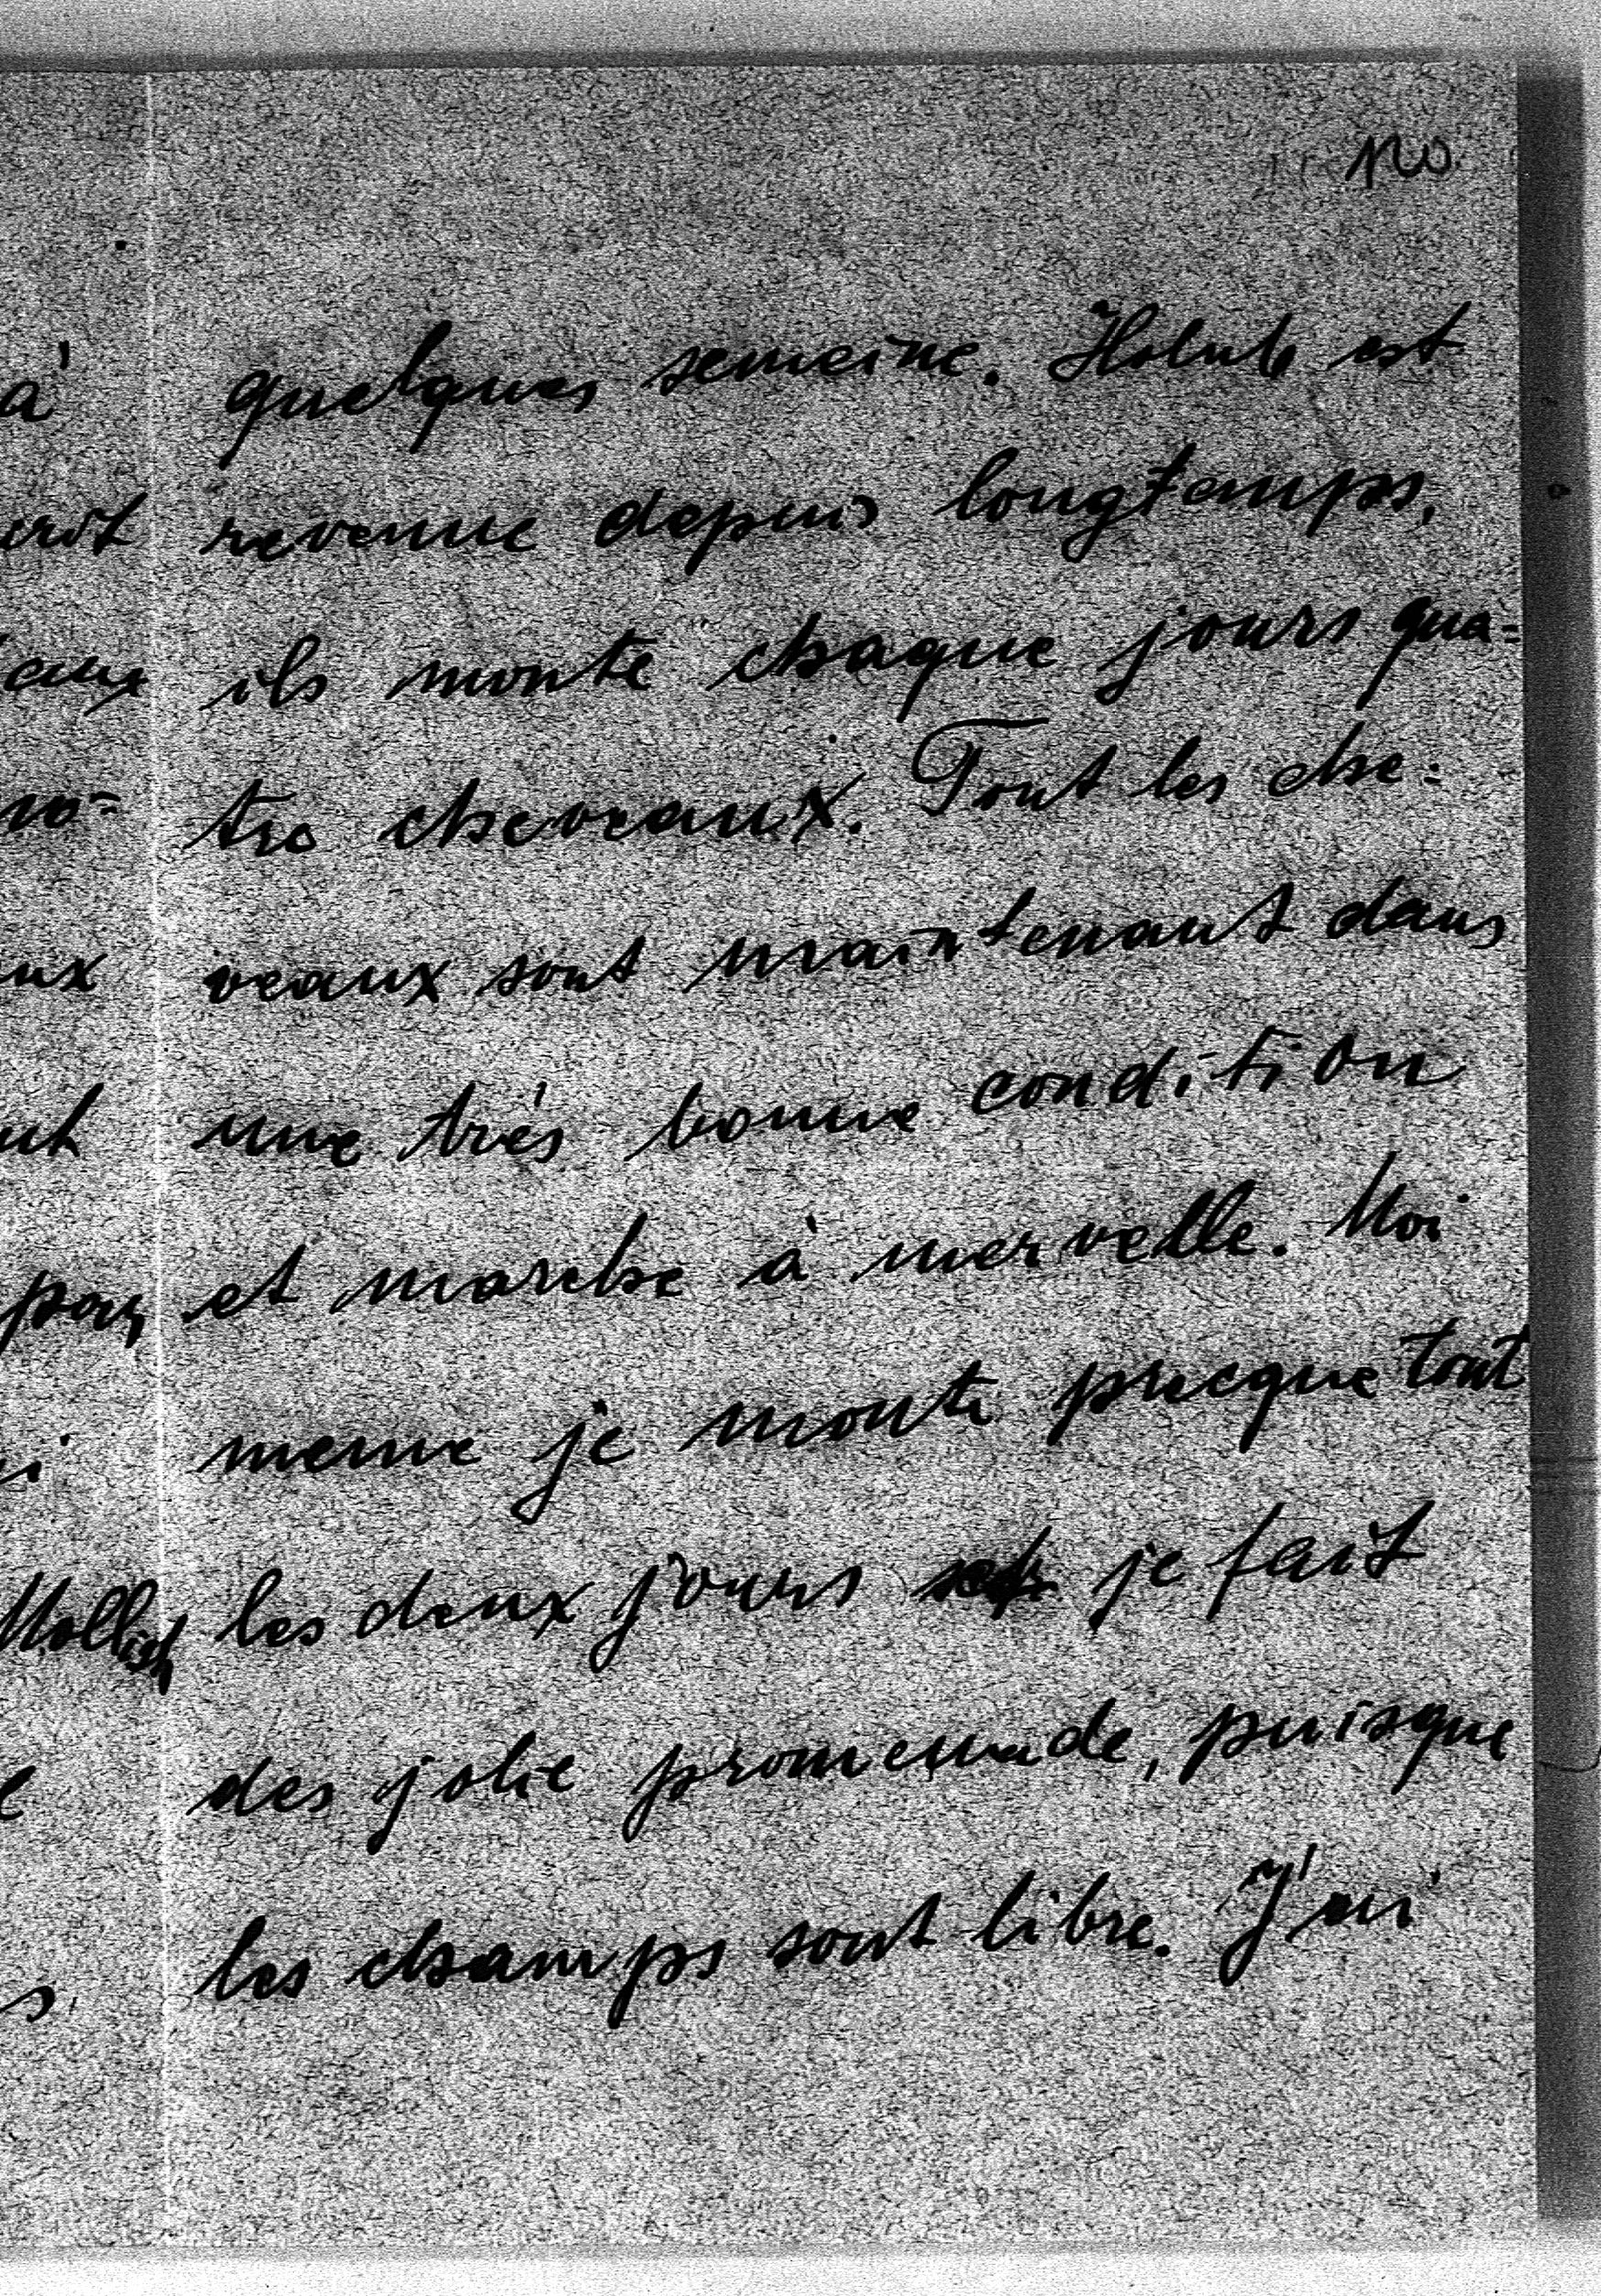 120
quelques semeine. Holub est
revenue depuis longtamps,
ils monte chaque jours qua=
tre cheveaux. Tout les che=
veaux sont maintenant dans
une très bonne condition
et marche à mervelle. Moi
meme je monte precque tout
les deux jours je fait
des jolie promenade, puisque
les champs sont libre. J'ai
à
aux
no=
ux
Mallish